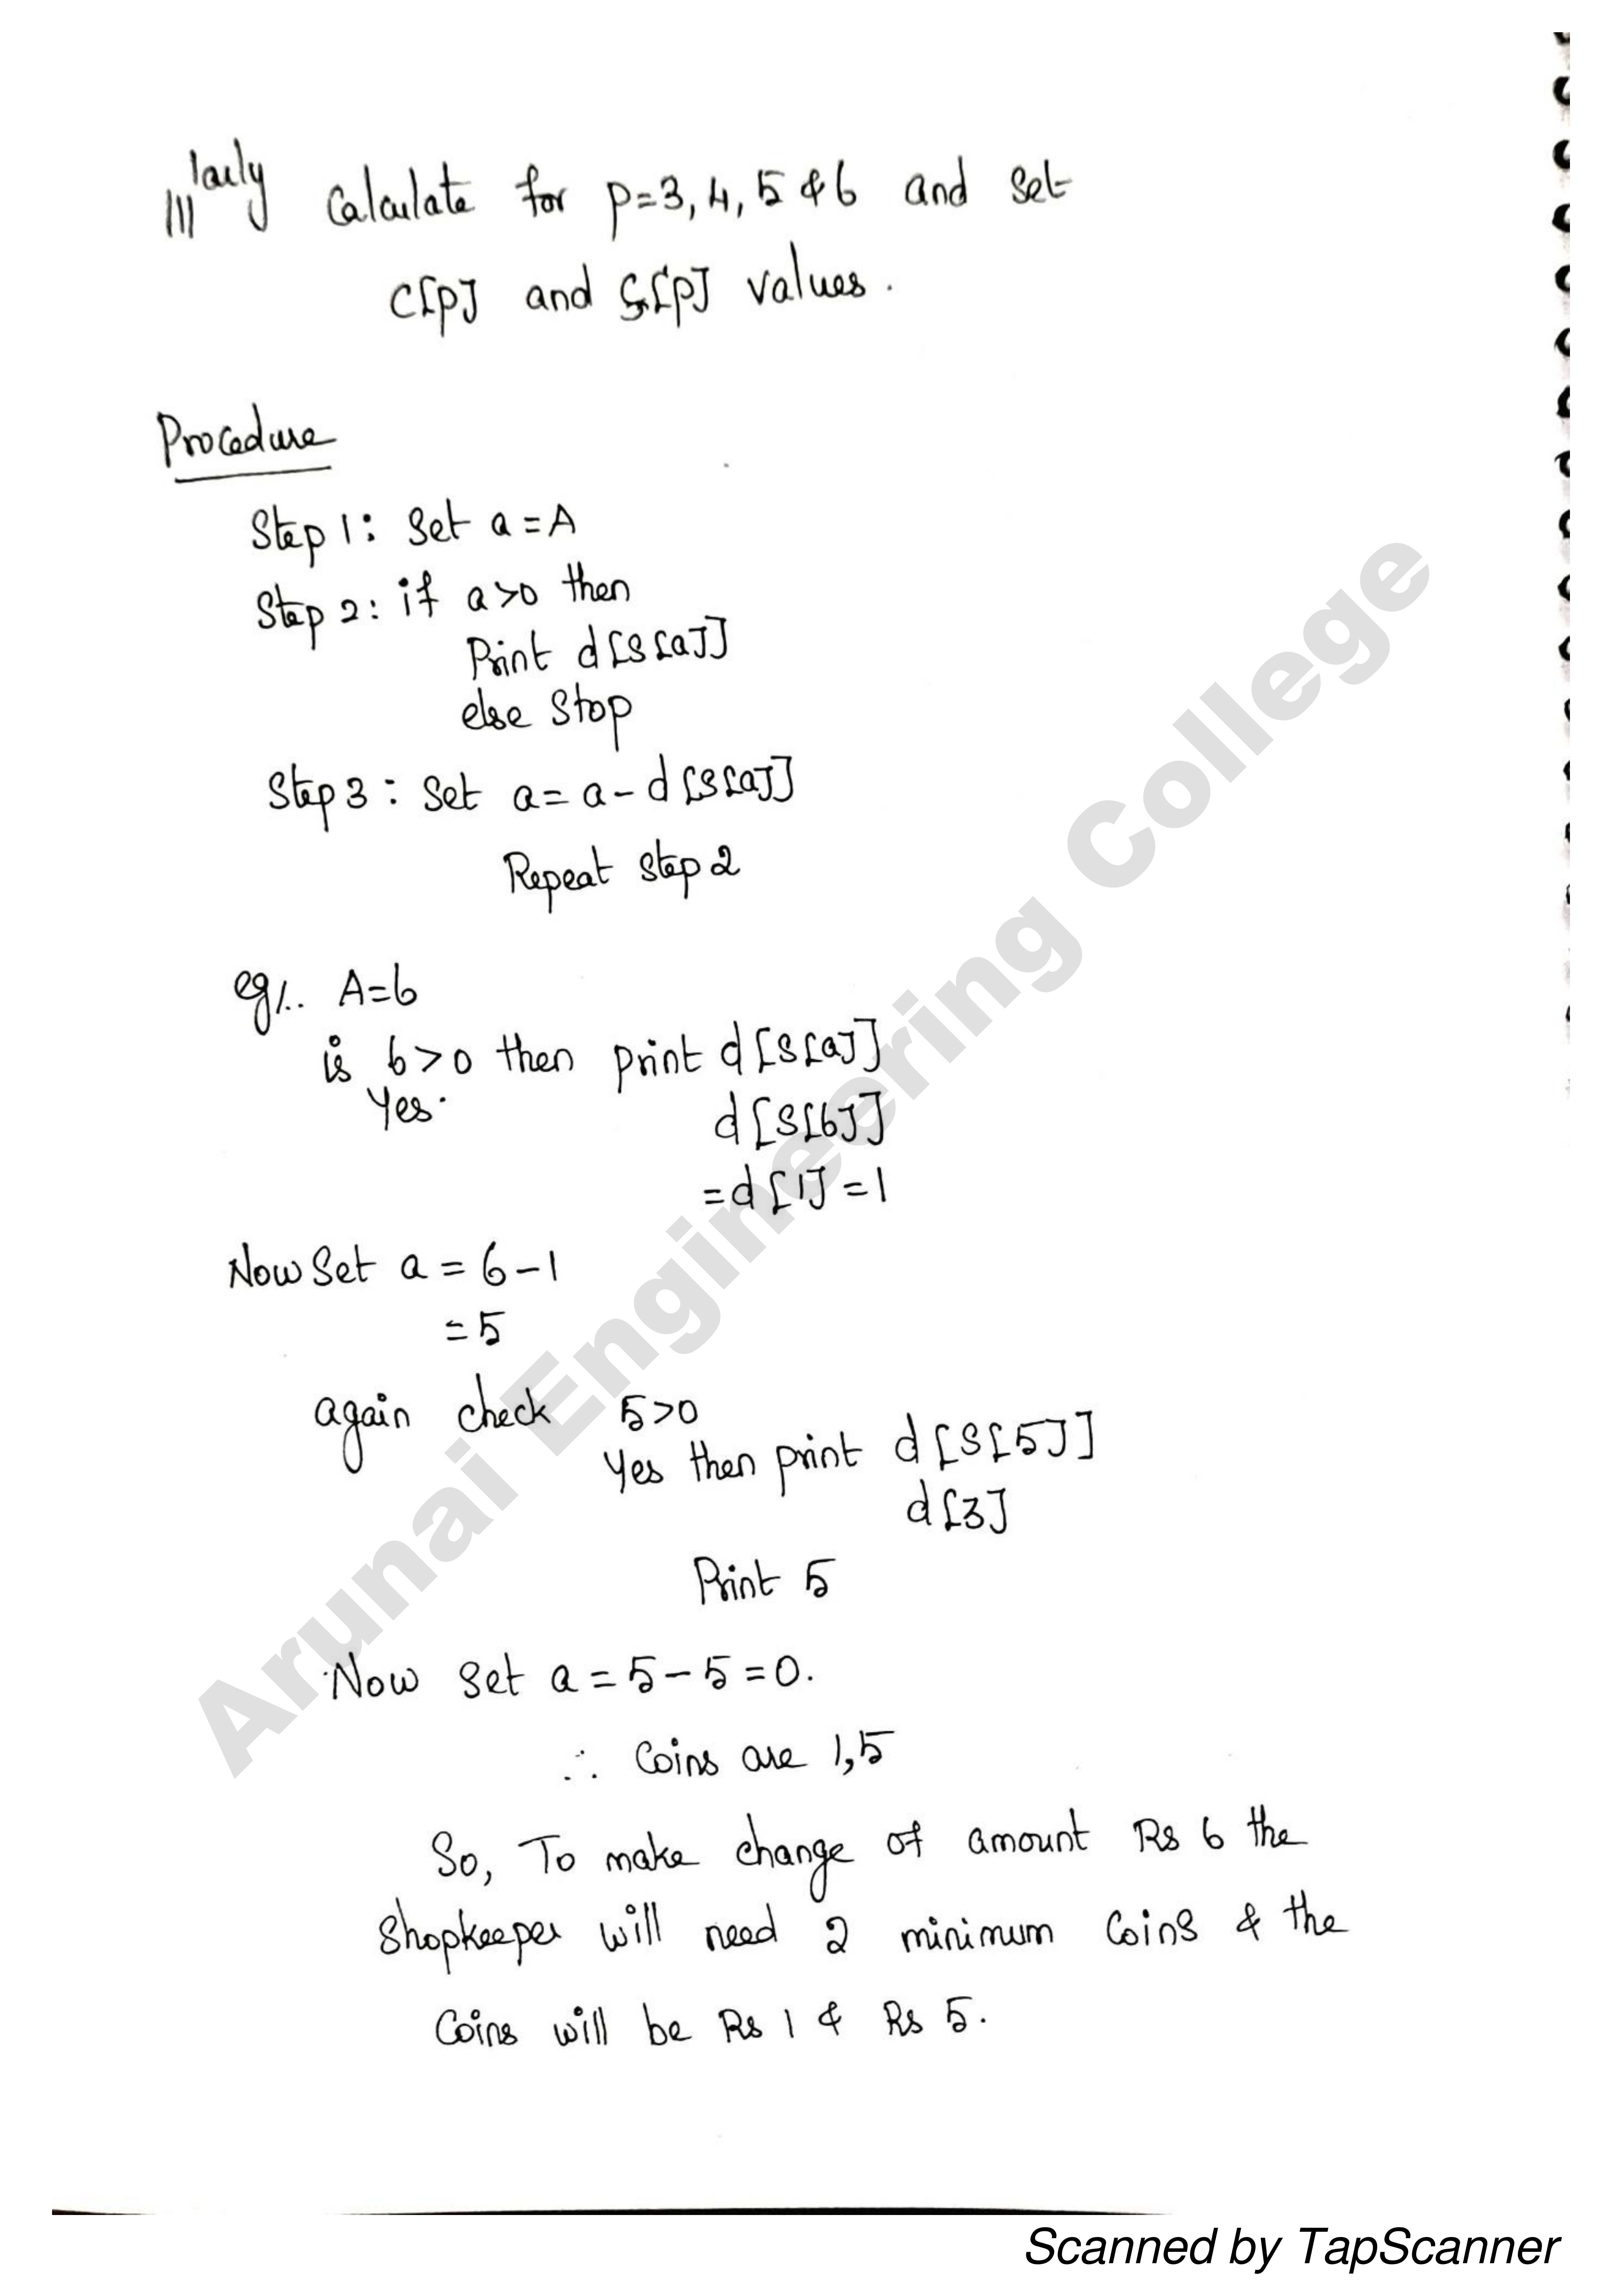 lllarly Calculate for p=3, 4, 5 & 6 and set
C[p] and S[p] values.
Procedure
Step 1: Set a = A
Step 2: if a>0 then
Print d[S[a]]
else Stop
Step 3: Set a = a - d[S[a]]
Repeat step 2
eg/.. A=6
is 6>0 then print d[S[a]]
Yes.
d[S[6]]
=d[1] = 1
Now Set a = 6-1
= 5
again check 5>0
Yes then print d[S[5]]
d[3]
Print 5
Now Set a = 5-5 = 0.
∴ Coins are 1,5
So, To make change of amount Rs 6 the
Shopkeeper will need 2 minimum Coins & the
Coins will be Rs 1 & Rs 5.
Arunai Engineering College
Scanned by TapScanner